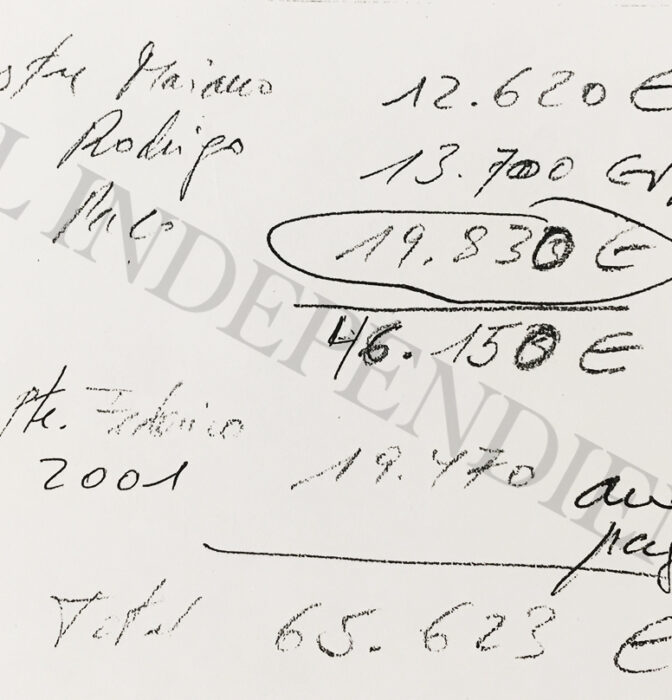 Mariano 12.620 €
Rodrigo 13.700
Paco 19.830 €
46.150 €
pte. Federico
2001 19.470
Total 65.623 €
EL INDEPENDIENTE